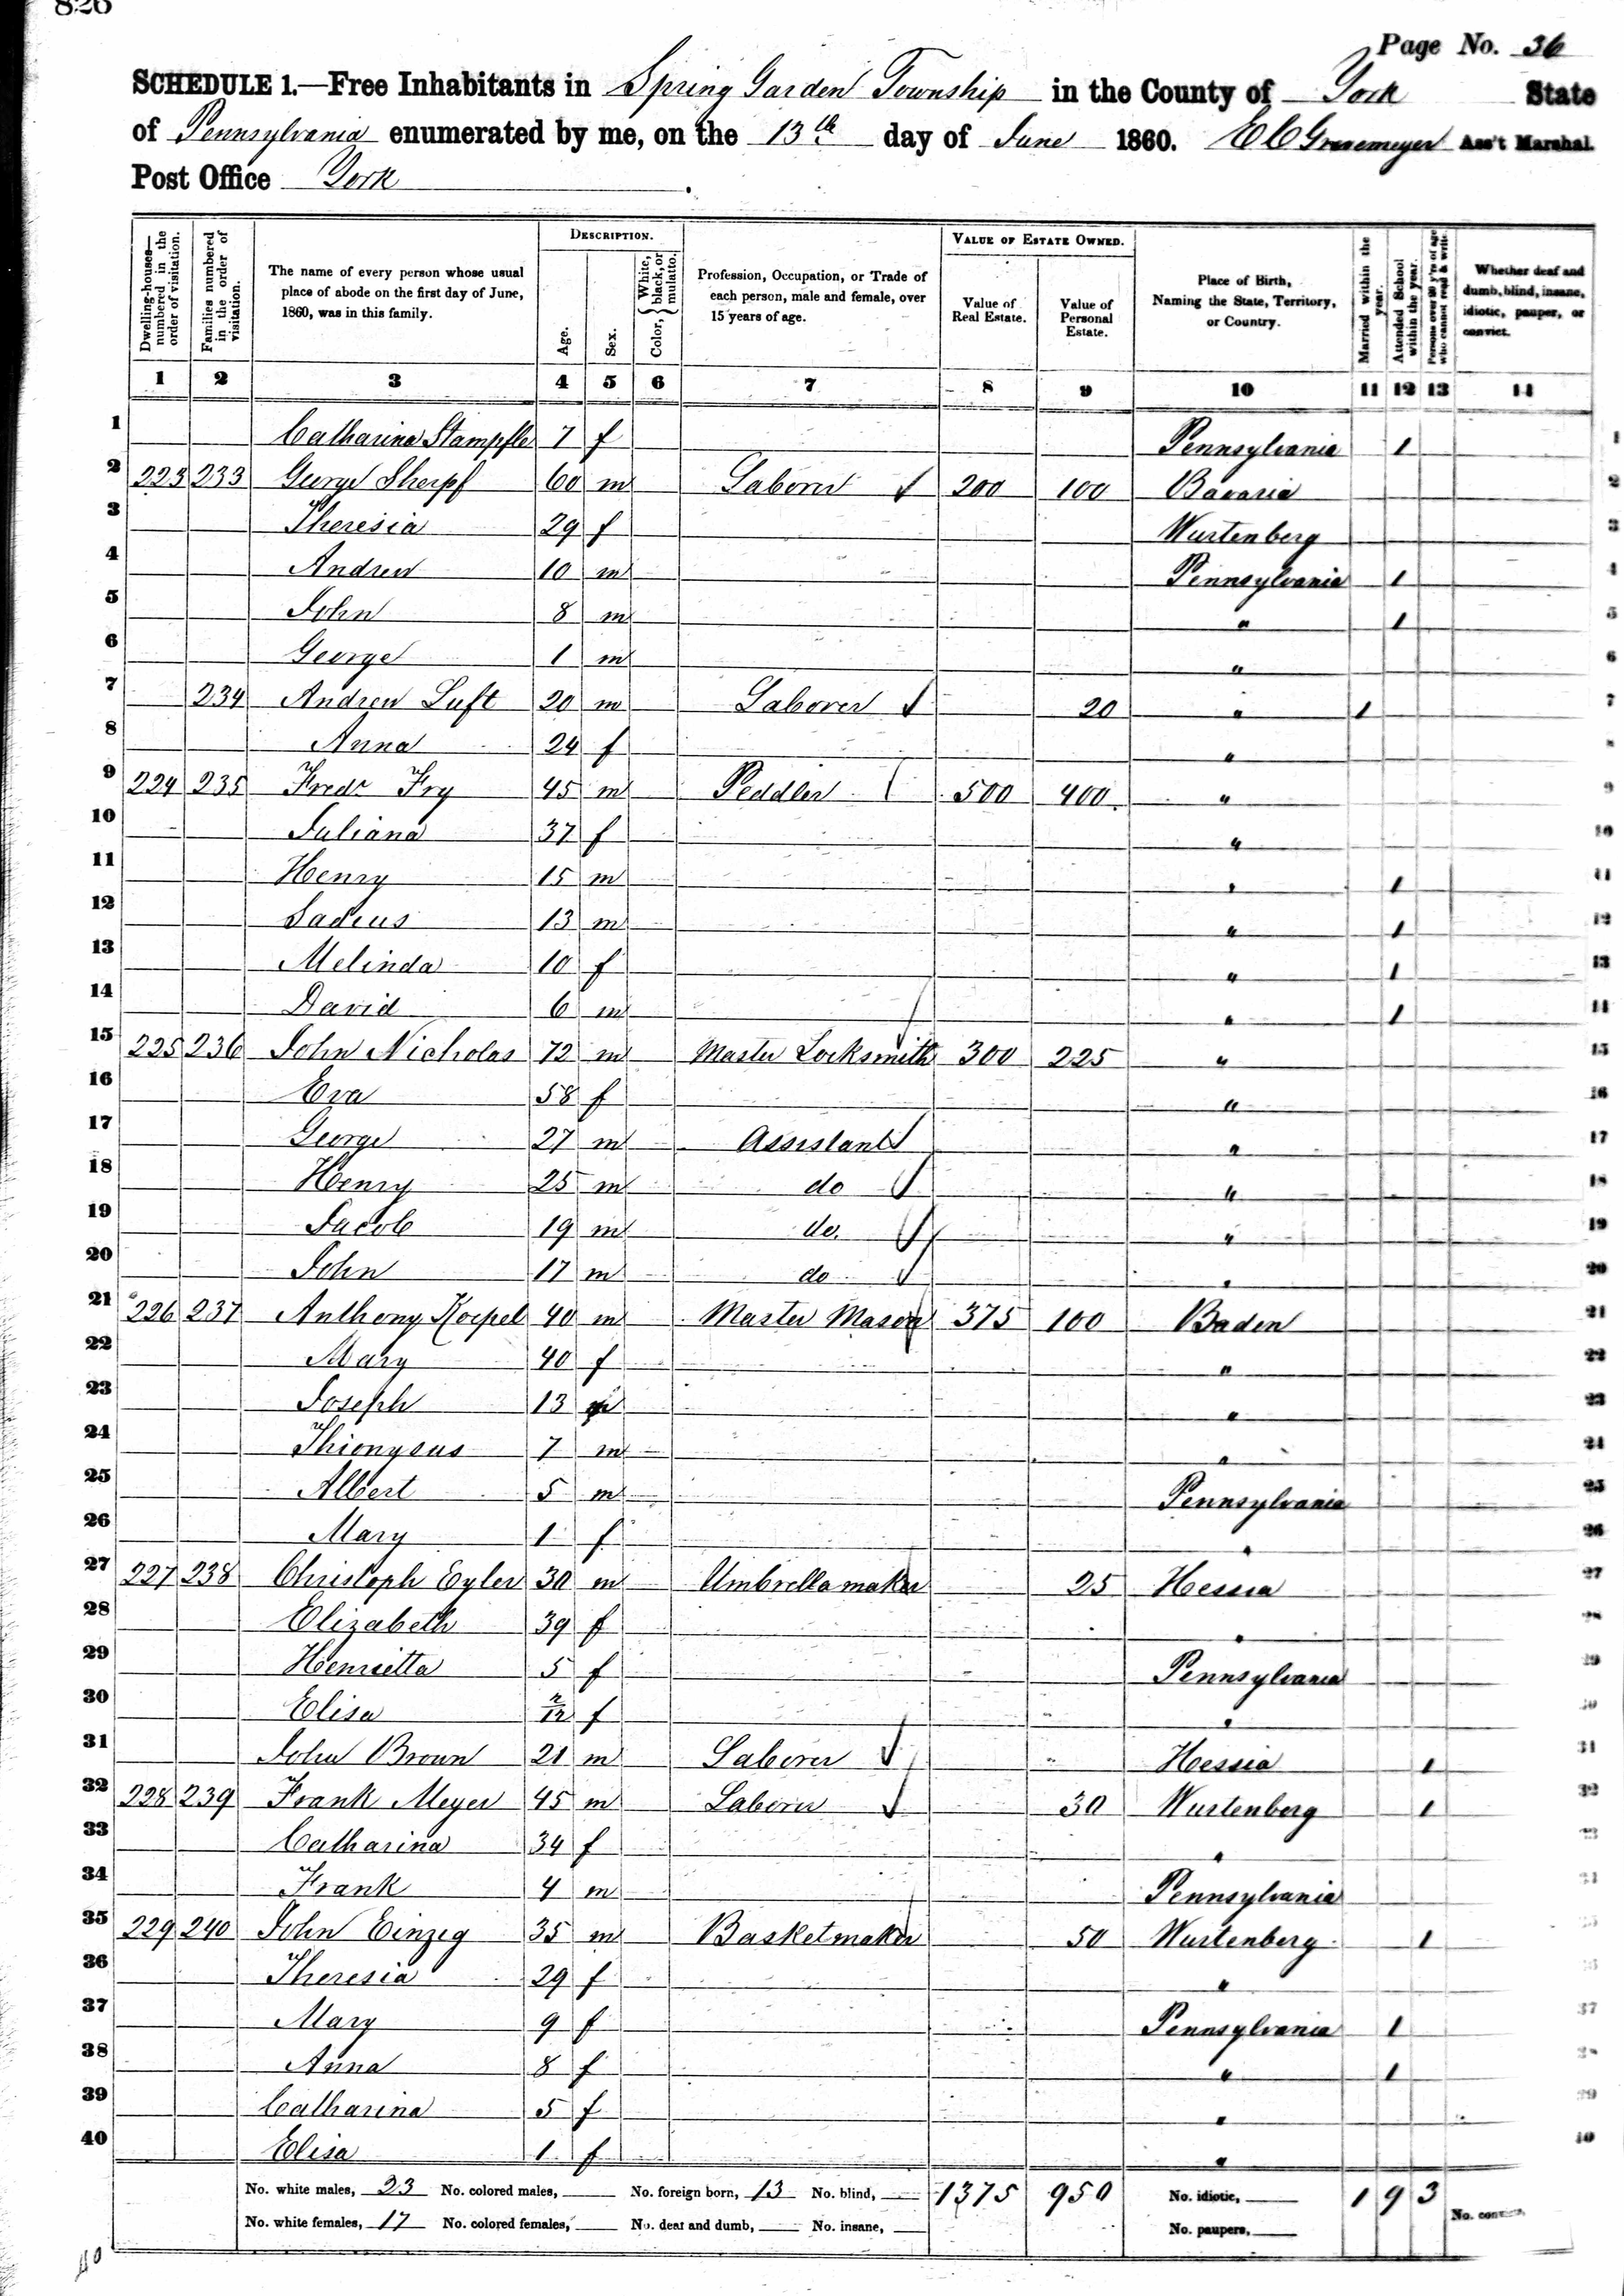 826
Page No. 36
SCHEDULE 1.—Free Inhabitants in Spring Garden Township in the County of York State
of Pennsylvania enumerated by me, on the 13th day of June 1860. E C Grasemeyer Ass't Marshal
Post Office York
Dwelling-houses—numbered in the order of visitation. Families numbered in the order of visitation. The name of every person whose usual place of abode on the first day of June, 1860, was in this family. DESCRIPTION. Age. Sex. Color, White, black, or mulatto. Profession, Occupation, or Trade of each person, male and female, over 15 years of age. VALUE OF ESTATE OWNED. Value of Real Estate. Value of Personal Estate. Place of Birth, Naming the State, Territory, or Country. Married within the year. Attended School within the year. Persons over 20 y'rs of age who cannot read & write. Whether deaf and dumb, blind, insane, idiotic, pauper, or convict.
1 2 3 4 5 6 7 8 9 10 11 12 13 14
1 Catharina Stampfle 7 f Pennsylvania 1 1
2 223 233 George Sherpf 60 m Laborer 200 100 Bavaria 2
3 Theresia 29 f Wurtenberg 3
4 Andrew 10 m Pennsylvania 1 4
5 John 8 m " 1 5
6 George 1 m " 6
7 234 Andrew Luft 20 m Laborer 20 " 1 7
8 Anna 24 f "
9 224 235 Fredr Fry 45 m Peddler 500 400 " 9
10 Juliana 37 f " 10
11 Henry 15 m " 1 11
12 Sadius 13 m " 1 12
13 Melinda 10 f " 1 13
14 David 6 m " 1 14
15 225 236 John Nicholas 72 m Master Locksmith 300 225 " 15
16 Eva 58 f " 16
17 George 27 m Assistant " 17
18 Henry 25 m do " 18
19 Jacob 19 m do. " 19
20 John 17 m do " 20
21 226 237 Anthony Koepel 40 m Master Mason 375 100 Baden 21
22 Mary 40 f " 22
23 Joseph 13 m " 23
24 Thionysus 7 m " 24
25 Albert 5 m Pennsylvania 25
26 Mary 1 f " 26
27 227 238 Christoph Eyler 30 m Umbrella maker 25 Hessia 27
28 Elizabeth 39 f "
29 Henrietta 5 f Pennsylvania 29
30 Elisa f " 30
31 John Brown 21 m Laborer Hessia 1 31
32 228 239 Frank Meyer 45 m Laborer 30 Wurtenberg 1 32
33 Catharina 34 f "
34 Frank 4 m Pennsylvania
35 229 240 John Einzig 35 m Basketmaker 50 Wurtenberg 1
36 Theresia 29 f "
37 Mary 9 f Pennsylvania 1 37
38 Anna 8 f " 1
39 Catharina 5 f " 39
40 Elisa 1 f " 40
No. white males, 23 No. colored males, No. foreign born, 13 No. blind, 1375 950 No. idiotic, 1 9 3 No. convicts,
No. white females, 17 No. colored females, No. deaf and dumb, No. insane, No. paupers,
40